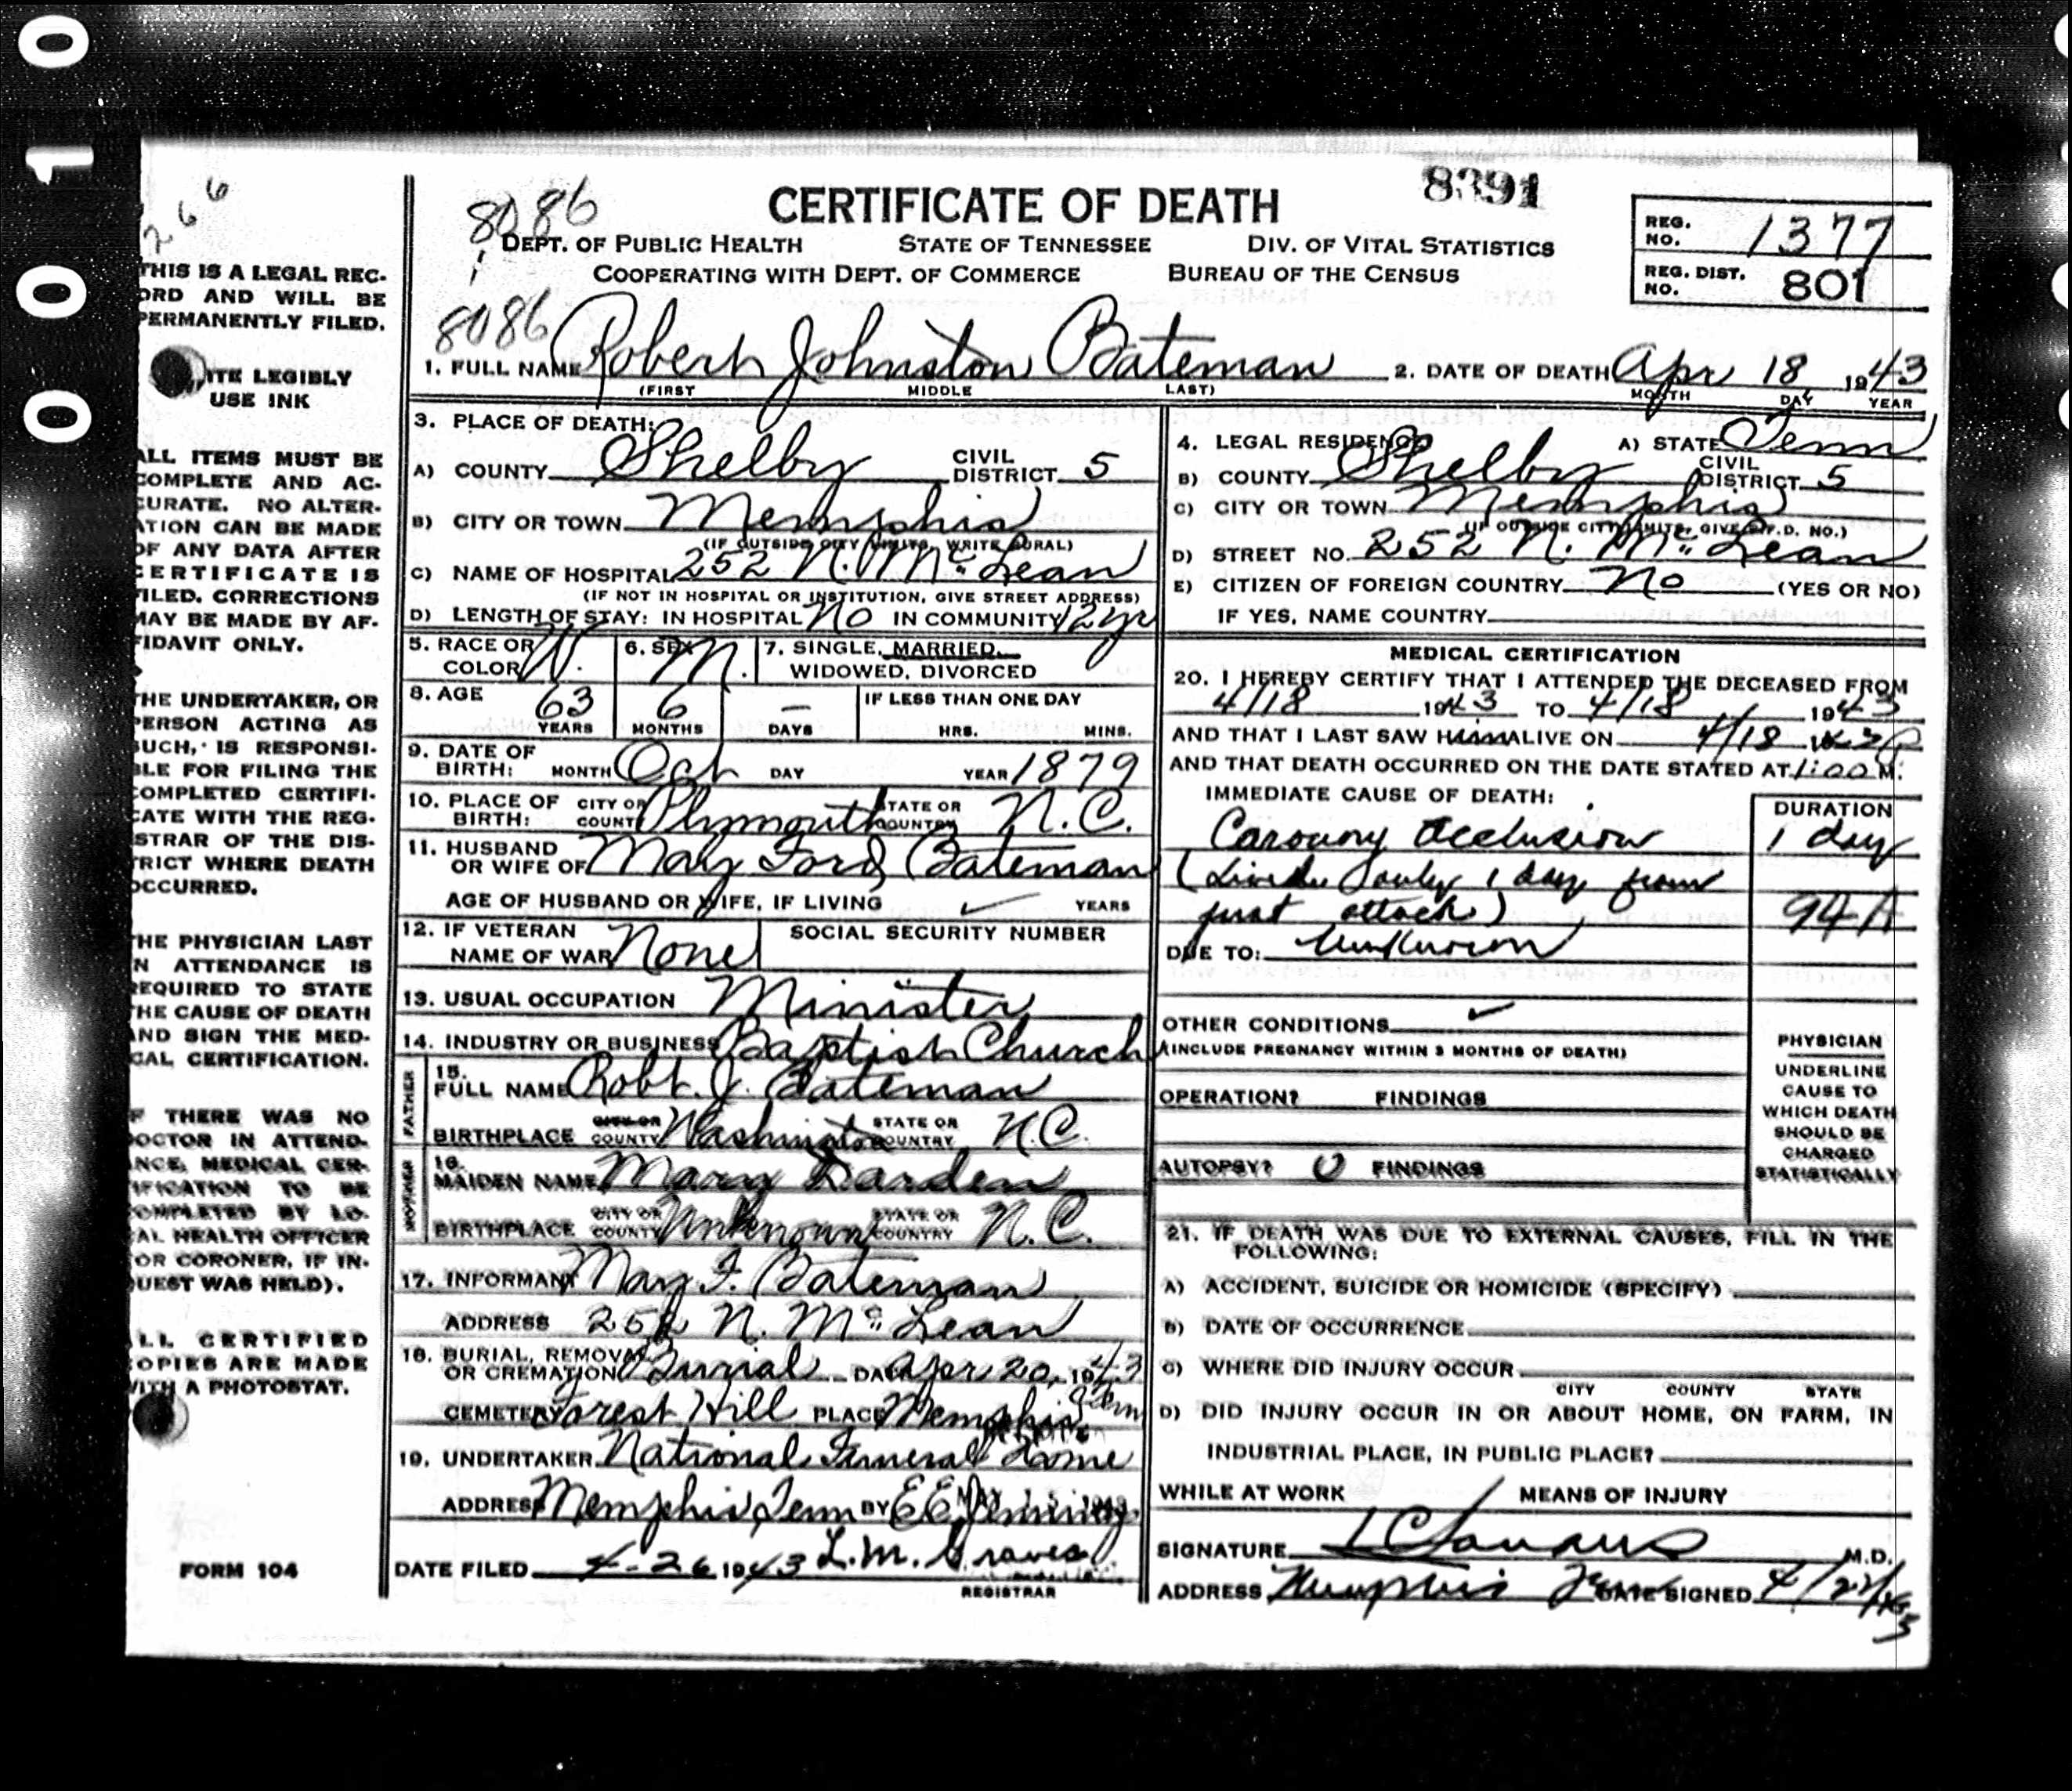 0 0 1 0
266
THIS IS A LEGAL REC-
ORD AND WILL BE
PERMANENTLY FILED.
ITE LEGIBLY
USE INK
ALL ITEMS MUST BE
COMPLETE AND AC-
CURATE. NO ALTER-
ATION CAN BE MADE
OF ANY DATA AFTER
CERTIFICATE IS
FILED. CORRECTIONS
MAY BE MADE BY AF-
FIDAVIT ONLY.
THE UNDERTAKER, OR
PERSON ACTING AS
SUCH, IS RESPONSI-
BLE FOR FILING THE
COMPLETED CERTIFI-
CATE WITH THE REG-
STRAR OF THE DIS-
TRICT WHERE DEATH
OCCURRED.
THE PHYSICIAN LAST
N ATTENDANCE IS
REQUIRED TO STATE
THE CAUSE OF DEATH
AND SIGN THE MED-
CAL CERTIFICATION.
F THERE WAS NO
DOCTOR IN ATTEND-
ANCE, MEDICAL CER-
TIFICATION TO BE
COMPLETED BY LO-
AL HEALTH OFFICER
OR CORONER, IF IN-
QUEST WAS HELD).
ALL CERTIFIED
COPIES ARE MADE
WITH A PHOTOSTAT.
FORM 104
8086
CERTIFICATE OF DEATH
8391
DEPT. OF PUBLIC HEALTH STATE OF TENNESSEE DIV. OF VITAL STATISTICS
COOPERATING WITH DEPT. OF COMMERCE BUREAU OF THE CENSUS
REG. NO. 1377
REG. DIST. NO. 801
8086
1. FULL NAME Robert Johnston Bateman 2. DATE OF DEATH Apr 18, 1943
(FIRST MIDDLE LAST) MONTH DAY YEAR
3. PLACE OF DEATH:
A) COUNTY Shelby CIVIL DISTRICT 5
B) CITY OR TOWN Memphis
(IF OUTSIDE CITY LIMITS, WRITE RURAL)
C) NAME OF HOSPITAL 252 N. McLean
(IF NOT IN HOSPITAL OR INSTITUTION, GIVE STREET ADDRESS)
D) LENGTH OF STAY: IN HOSPITAL No IN COMMUNITY 12 yr
5. RACE OR COLOR W. 6. SEX M. 7. SINGLE, MARRIED, WIDOWED, DIVORCED
8. AGE 63 6 – IF LESS THAN ONE DAY
YEARS MONTHS DAYS HRS. MINS.
9. DATE OF BIRTH: MONTH Oct DAY YEAR 1879
10. PLACE OF BIRTH: CITY OR COUNTY Plymouth STATE OR COUNTRY N.C.
11. HUSBAND OR WIFE OF Mary Ford Bateman
AGE OF HUSBAND OR WIFE, IF LIVING ✓ YEARS
12. IF VETERAN NAME OF WAR None SOCIAL SECURITY NUMBER
13. USUAL OCCUPATION Minister
14. INDUSTRY OR BUSINESS Baptist Church
FATHER
15. FULL NAME Robt. J. Bateman
BIRTHPLACE CITY OR COUNTY Washington STATE OR COUNTRY N.C.
MOTHER
16. MAIDEN NAME Mary Darden
BIRTHPLACE CITY OR COUNTY Unknown STATE OR COUNTRY N.C.
17. INFORMANT Mary F. Bateman
ADDRESS 252 N. McLean
18. BURIAL, REMOVAL OR CREMATION Burial DATE Apr 20, 1943
CEMETERY Forest Hill PLACE Memphis Tenn
19. UNDERTAKER National Funeral Home
ADDRESS Memphis Tenn BY E E Jennings
DATE FILED 4-26 1943 L.M. Graves
REGISTRAR
4. LEGAL RESIDENCE A) STATE Tenn
B) COUNTY Shelby CIVIL DISTRICT 5
C) CITY OR TOWN Memphis
(IF OUTSIDE CITY LIMITS, GIVE R.F.D. NO.)
D) STREET NO. 252 N. McLean
E) CITIZEN OF FOREIGN COUNTRY No (YES OR NO)
IF YES, NAME COUNTRY
MEDICAL CERTIFICATION
20. I HEREBY CERTIFY THAT I ATTENDED THE DECEASED FROM
4/18 1943 TO 4/18 1943
AND THAT I LAST SAW HIM ALIVE ON 4/18
AND THAT DEATH OCCURRED ON THE DATE STATED AT 1:00 P M.
IMMEDIATE CAUSE OF DEATH: DURATION
Coronary Occlusion 1 day
(Lived only 1 day from
first attack) 94A
DUE TO: Unknown
OTHER CONDITIONS ✓
(INCLUDE PREGNANCY WITHIN 3 MONTHS OF DEATH)
OPERATION? FINDINGS
AUTOPSY? 0 FINDINGS
PHYSICIAN
UNDERLINE
CAUSE TO
WHICH DEATH
SHOULD BE
CHARGED
STATISTICALLY
21. IF DEATH WAS DUE TO EXTERNAL CAUSES, FILL IN THE
FOLLOWING:
A) ACCIDENT, SUICIDE OR HOMICIDE (SPECIFY)
B) DATE OF OCCURRENCE
C) WHERE DID INJURY OCCUR
CITY COUNTY STATE
D) DID INJURY OCCUR IN OR ABOUT HOME, ON FARM, IN
INDUSTRIAL PLACE, IN PUBLIC PLACE?
WHILE AT WORK MEANS OF INJURY
SIGNATURE M.D.
ADDRESS Memphis Tenn DATE SIGNED 4/22/43